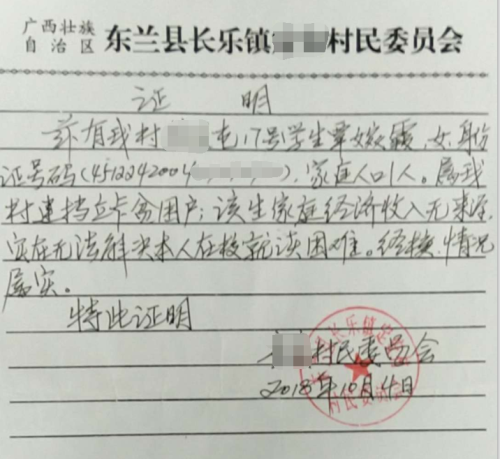 广西壮族
自治区 东兰县长乐镇 村民委员会
证 明
兹有我村 屯17号学生覃姣霞,女,身份
证号码(4512242004 ),家庭人口1人。属我
村建挡立卡贫困户;该生家庭经济收入无来源
实在无法解决本人在校就读困难。经核,情况
属实。
特此证明
村民委员会
2018年10月 日
长乐镇
村民委员会